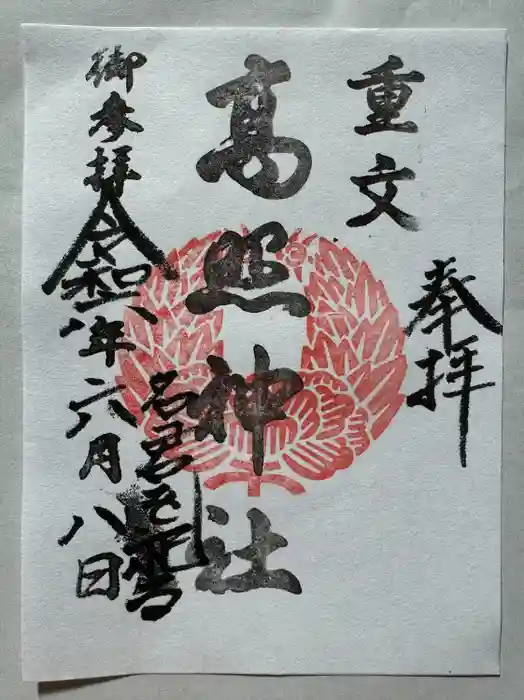 重文
奉拝
高照神社
名君
御参拝
令和六年六月八日